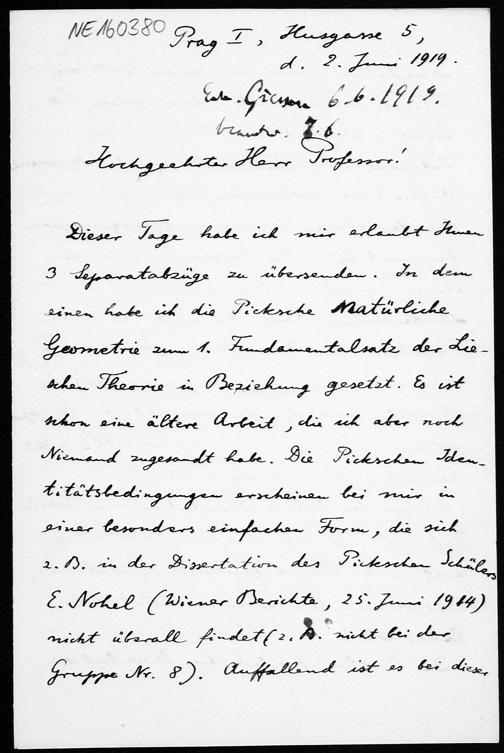 NE160380
Prag I, Husgasse 5,
d. 2. Juni 1919.
Giessen 6.6.1919.
beantw. 7.6.
Hochgeehrter Herr Professor!
Dieser Tage habe ich mir erlaubt Ihnen
3 Separatabzüge zu übersenden. In dem
einen habe ich die Picksche Natürliche
Geometrie zum 1. Fundamentalsatz der Lie-
schen Theorie in Beziehung gesetzt. Es ist
schon eine ältere Arbeit, die ich aber noch
Niemand zugesandt habe. Die Pickschen Iden-
titätsbedingungen erscheinen bei mir in
einer besonders einfachen Form, die sich
z. B. in der Dissertation des Pickschen Schülers
E. Nohel (Wiener Berichte, 25. Juni 1914)
nicht überall findet (z. B. nicht bei der
Gruppe Nr. 8). Auffallend ist es bei dieser